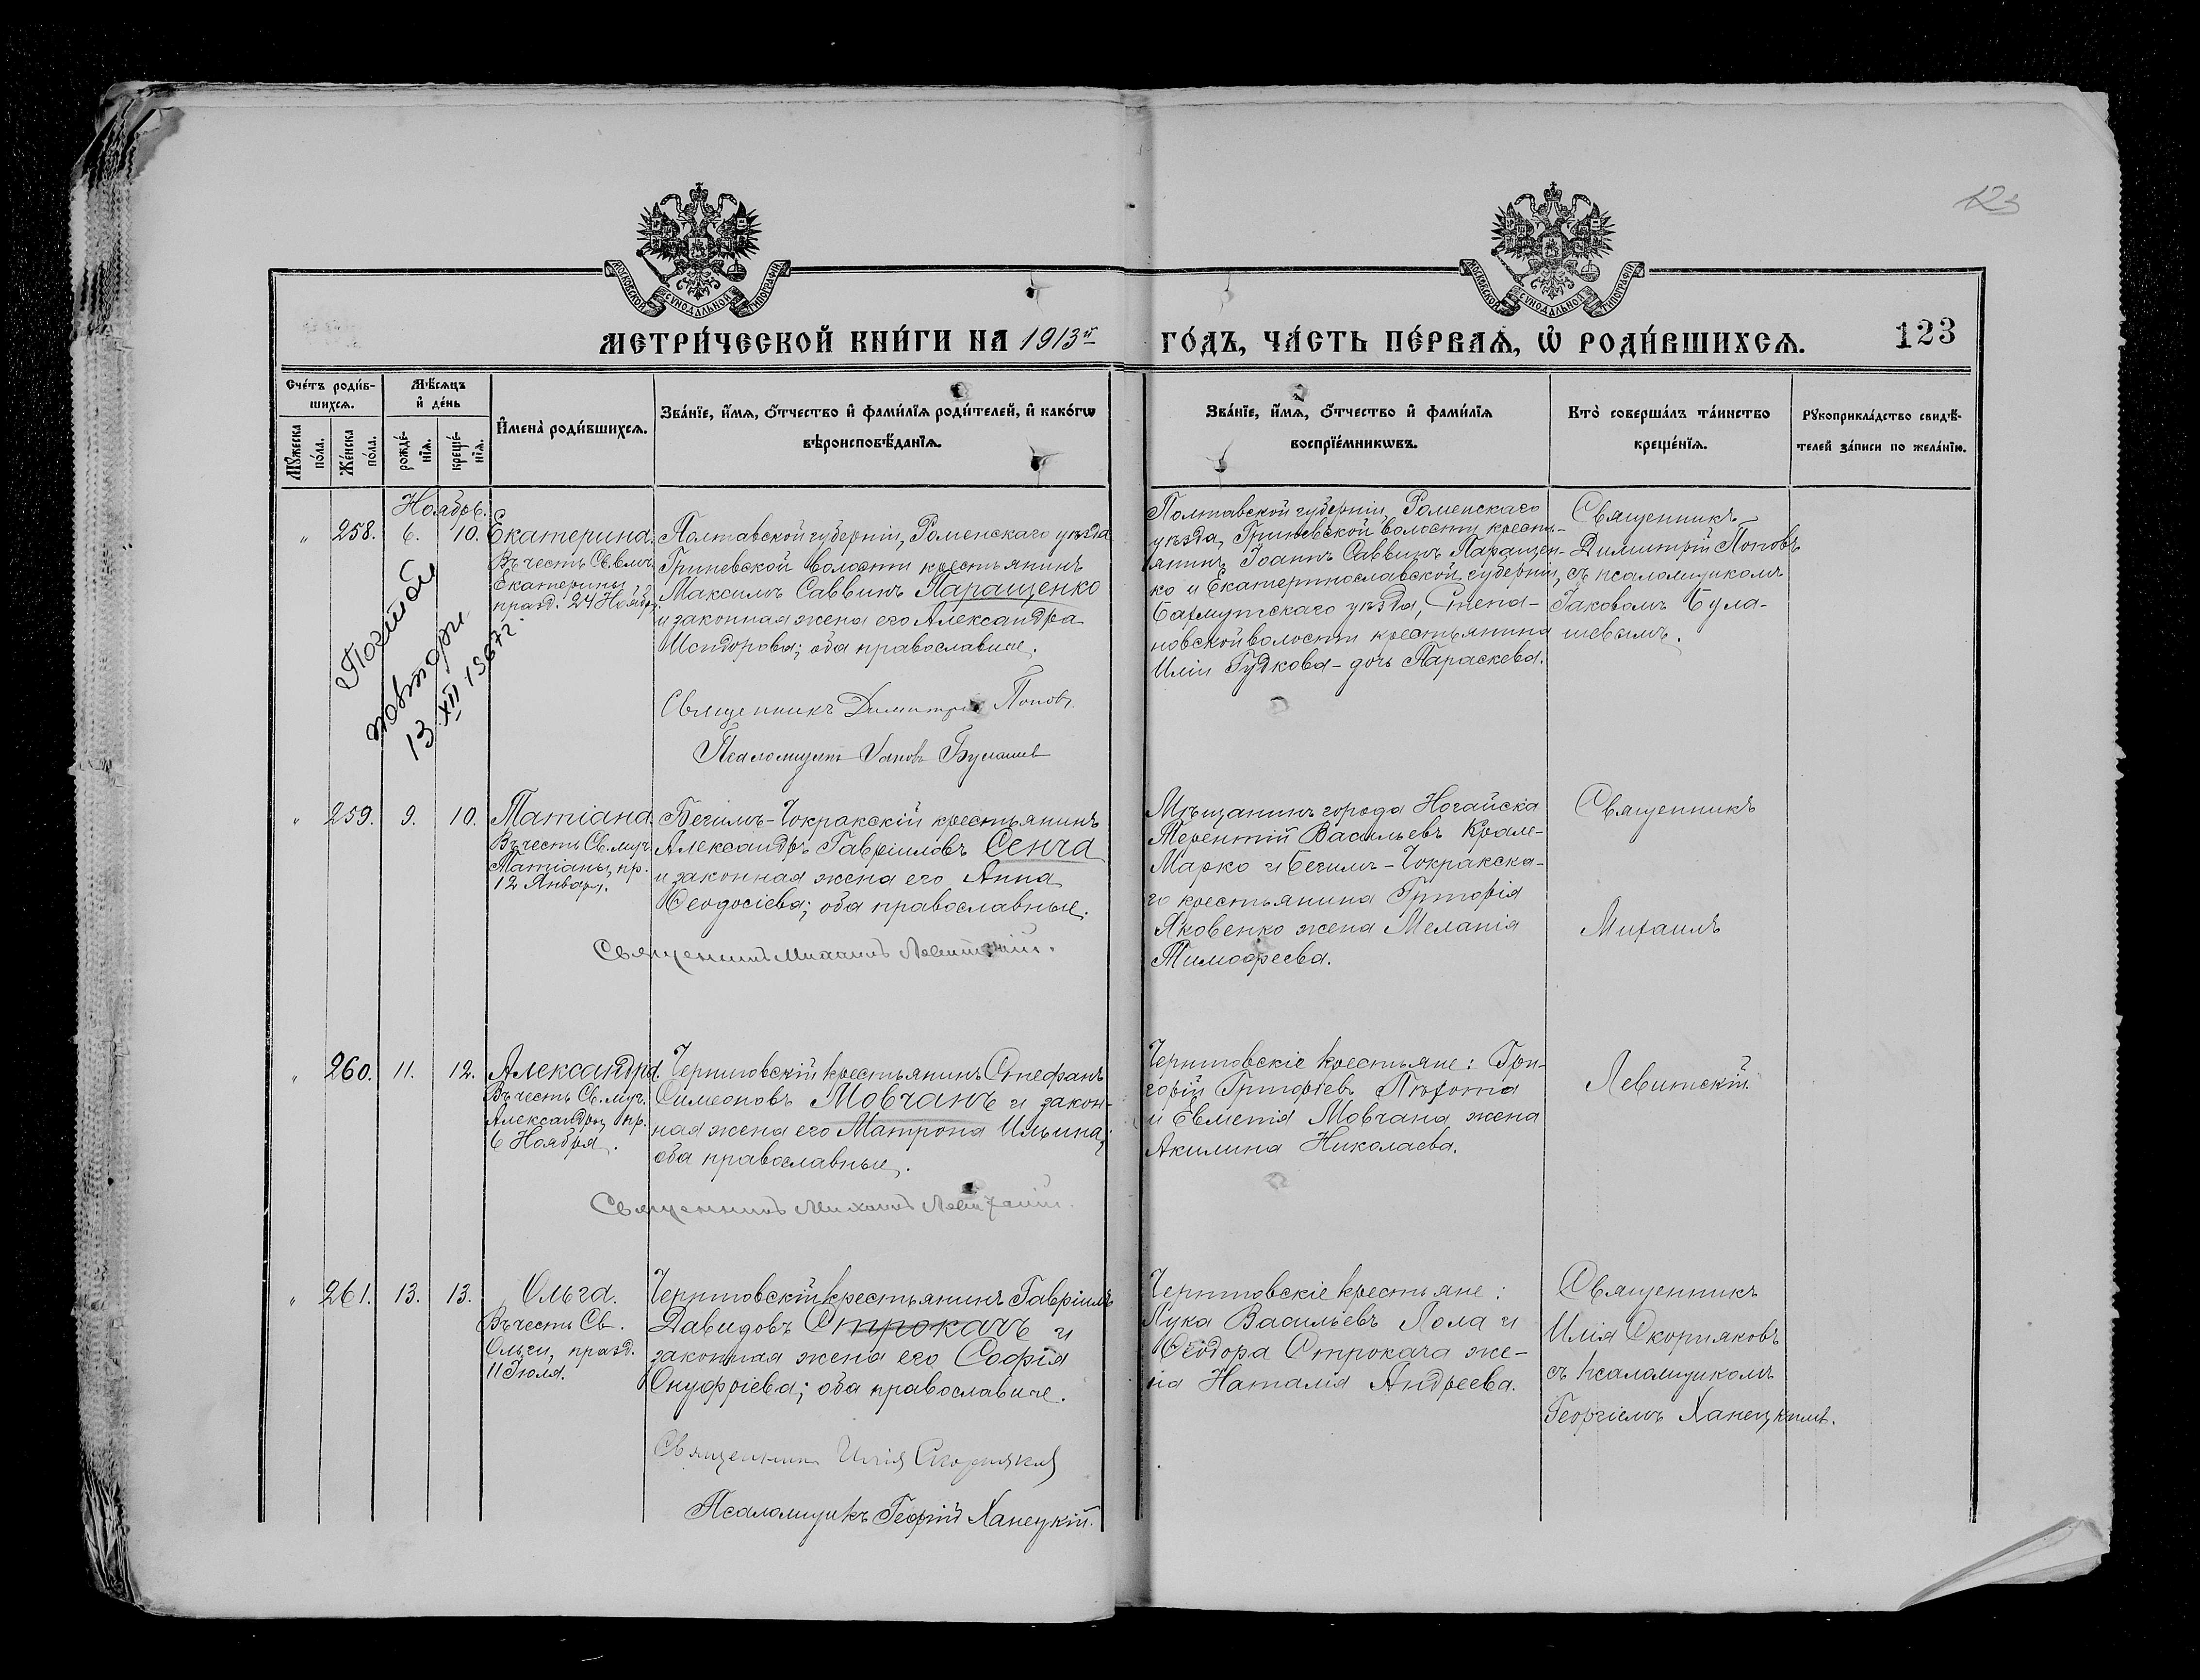 123
МОСКОВСКОЙ СѴНОДАЛЬНОЙ ТИПОГРАФІИ
МОСКОВСКОЙ СѴНОДАЛЬНОЙ ТИПОГРАФІИ
МЕТРИ́ЧЕСКОЙ КНИ́ГИ НА 1913й
ГО́ДЪ, ЧА́СТЬ ПЕ́РВАѦ, Ѡ҆ РОДИ́ВШИХСѦ.
123
Сче́тъ роди́в-
шихсѧ.
Мꙋ́жеска
по́ла.
Же́нска
по́ла.
Мѣ́сѧцъ
и҆ де́нь
рожде́-
нїѧ.
креще́-
нїѧ.
И҆мена̀ роди́вшихсѧ.
Зва́нїе, и҆́мѧ, ѻ҆́тчество и҆ фами́лїѧ роди́телей, и҆ како́гѡ
вѣроисповѣ́данїѧ.
Зва́нїе, и҆́мѧ, ѻ҆́тчество и҆ фами́лїѧ
воспрїе́мникѡвъ.
Кто̀ соверша́лъ та́инство
креще́нїѧ.
Рꙋкоприкла́дство свидѣ́-
телей за́писи по жела́нїю.
Ноябрь.
" 258. 6. 10.
Екатерина.
Въ честь Св. влмч.
Екатерины,
празд. 24 Ноября.
Полтавской губерніи, Роменскаго уѣзда
Гриневской волости крестьянинъ
Максимъ Саввинъ Паращенко
и законная жена его Александра
Исидорова; оба православные.
Священникъ Димитрій Попов
Псаломщикъ Іаковъ Булашев
Полтавской губерніи, Роменскаго
уѣзда, Гриневской волости кресть-
янинъ Іоаннъ Саввинъ Паращен-
ко и Екатеринославской губерніи,
Бахмутскаго уѣзда, Степа-
новской волости крестьянина
Иліи Гудкова - дочь Параскева.
Священникъ
Димитрій Поповъ
съ псаломщикомъ
Іаковомъ Була-
шевымъ.
повтори.
13 XII 1967г.
" 259. 9. 10.
Татіана.
Въ честь Св. муч.
Татіаны, пр.
12 Января.
Бегимъ-Чокракскій крестьянинъ
Александръ Гавріиловъ Сенча
и законная жена его Анна
Ѳеодосіева; оба православные.
Священникъ Михаилъ Левитскій.
Мѣщанинъ города Ногайска
Терентій Васильевъ Крале-
Марко и Бегимъ-Чокракска-
го крестьянина Григорія
Яковенко жена Меланія
Тимоѳеева.
Священникъ
Михаилъ
Левитскій.
" 260. 11. 12.
Александра.
Въ честь Св. муч.
Александры, пр.
6 Ноября.
Черниговскій крестьянинъ Стефанъ
Симеоновъ Мовчанъ и закон-
ная жена его Матрона Ильина;
оба православные.
Священникъ Михаилъ Левитскій.
Черниговскіе крестьяне: Гри-
горій Григоріевъ Пѣхота
и Евметія Мовчана жена
Акилина Николаева.
" 261. 13. 13.
Ольга.
Въ честь Св.
Ольги, празд.
11 Іюля.
Черниговскій крестьянинъ Гавріилъ
Давидовъ Строкачъ и
законная жена его Софія
Онуфріева; оба православные.
Священникъ Илія Скорняков
Псаломщикъ Георгій Ханецкій.
Черниговскіе крестьяне:
Лука Васильевъ Лола и
Ѳеодора Строкача же-
на Наталія Андреева.
Священникъ
Илія Скорняковъ
съ псаломщикомъ
Георгіемъ Ханецкимъ.